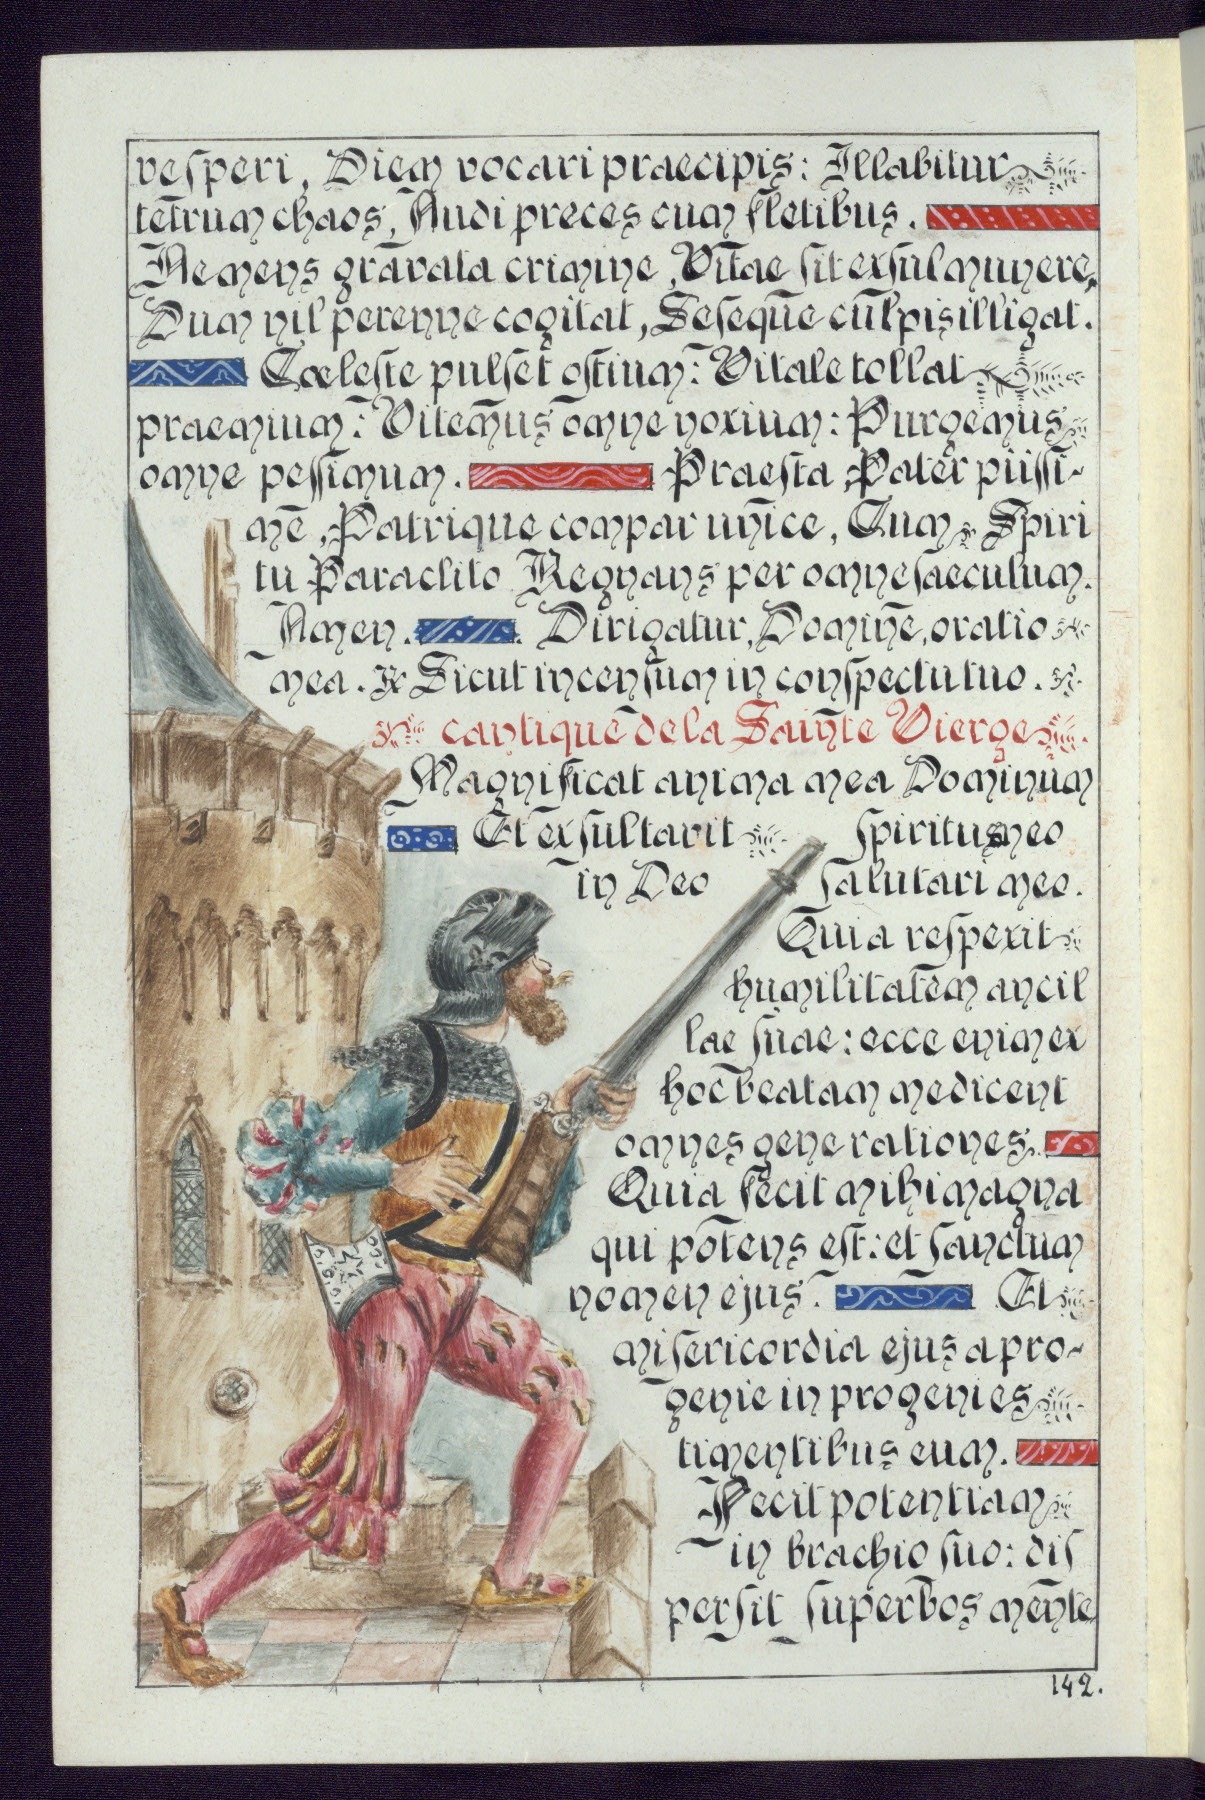 vesperi, Diem vocari praecipis: Illabitur
tetrum chaos, Audi preces cum fletibus.
Ne mens gravata crimine, Vitae sit exsul munere,
Dum nil perenne cogitat, Seseque culpis illigat.
Cœleste pulset ostium: Vitale tollat
praemium: Vitemus omne noxium: Purgemus
omne pessimum. Praesta, Pater piissi-
me, Patrique compar unice, Cum Spiri
tu Paraclito Regnans per omne saeculum.
Amen. Dirigatur, Domine, oratio
mea. ℟ Sicut incensum in conspectu tuo.
cantique de la Sainte Vierge
Magnificat anima mea Dominum
Et exsultavit spiritus meo
in Deo salutari meo.
Quia respexit
humilitatem ancil
lae suae: ecce enim ex
hoc beatam me dicent
omnes generationes.
Quia fecit mihi magna
qui potens est: et sanctum
nomen ejus. Et
misericordia ejus a pro-
genie in progenies
timentibus eum.
Fecit potentiam
in brachio suo: dis
persit superbos mente
142.